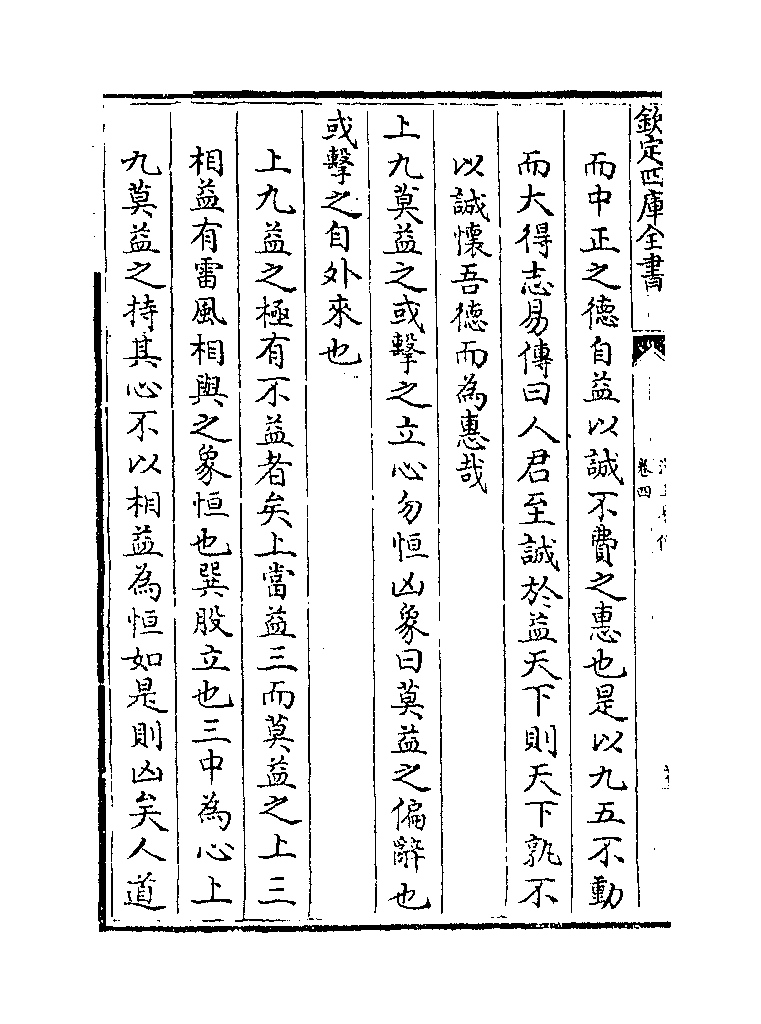 欽定四庫全書
卷四
而中正之德自益以誠不費之惠也是以九五不動
而大得志易傳曰人君至誠於益天下則天下孰不
以誠懷吾德而為惠哉
上九莫益之或擊之立心勿恒凶象曰莫益之偏辭也
或擊之自外來也
上九益之極有不益者矣上當益三而莫益之上三
相益有雷風相與之象恒也巽股立也三中為心上
九莫益之持其心不以相益為恒如是則凶矣人道